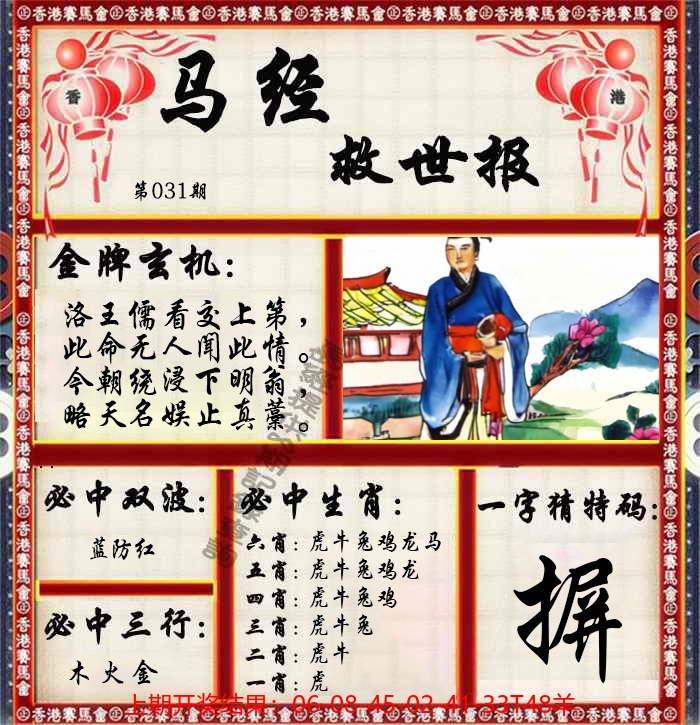 香港賽馬會
香 港
马经
救世报
第031期
金牌玄机：
洛王儒看交上第，
此命无人闻此情。
今朝绕浸下明翁，
略天名娱止真藁。
必中双波：
蓝防红
必中三行：
木火金
必中生肖：
六肖：虎牛兔鸡龙马
五肖：虎牛兔鸡龙
四肖：虎牛兔鸡
三肖：虎牛兔
二肖：虎牛
一肖：虎
一字猜特码：
摒
上期开奖结果：06-08-45-02-41-33T48羊